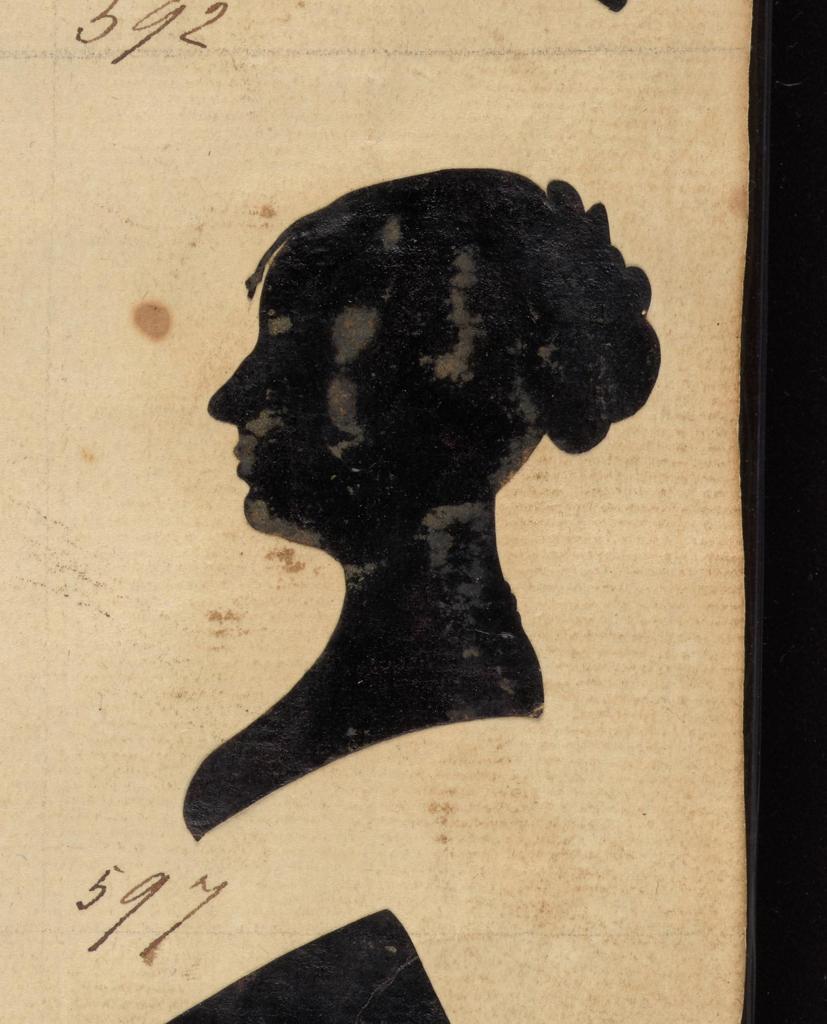 592
597